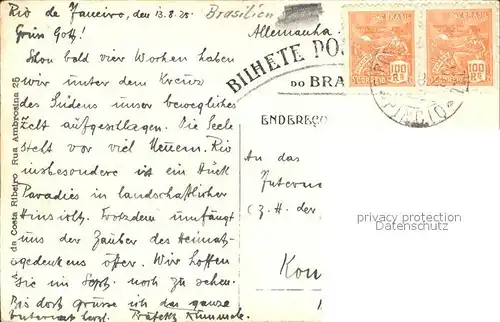 Rio de Janeiro, den 13.8.28. Brasilien
Grüss Gott!
Schon bald vier Wochen haben
wir unter dem Kreuz
des Südens unser bewegliches
Zelt aufgeschlagen. Die Seele
steht vor viel Neuem. Rio
insbesondere ist ein Stück
Paradies in landschaftlicher
Hinsicht. Trotzdem umfängt
uns der Zauber des Heimat-
gedenkens öfter. Wir hoffen
Sie im Sept. noch zu sehen.
Bis dort grüsse ich das ganze
Internat herzl.
A. da Costa Ribeiro, Rua Ambrosina 25
Allemanha.
BILHETE PO
DO BRA
ENDEREÇO
BRASIL
CORREIO
100
RS
BRASIL
CORREIO
100
RS
An das
Internat
(z. H. der
Kon
privacy protection
Datenschutz